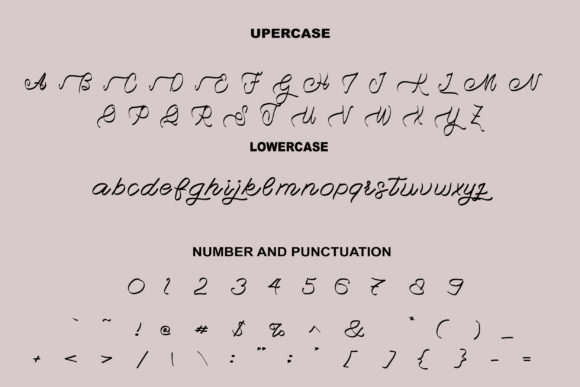 UPERCASE
A B C D E F G H I J K L M N
O P Q R S T U V W X Y Z
LOWERCASE
abcdefghijklmnopqrstuvwxyz
NUMBER AND PUNCTUATION
0 1 2 3 4 5 6 7 8 9
` ~ ! @ # $ % ^ & * ( ) _
+ < > / | \ : " ; ' [ ] { } - =